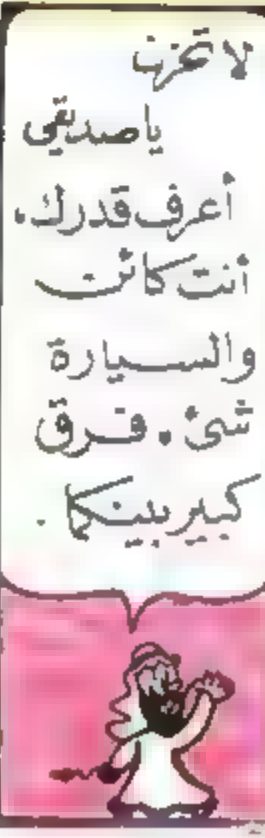 لا تحزن
يا صديقي
أعرف قدرك،
أنت كائن
والسيارة
شئ . فرق
كبير بينكما .